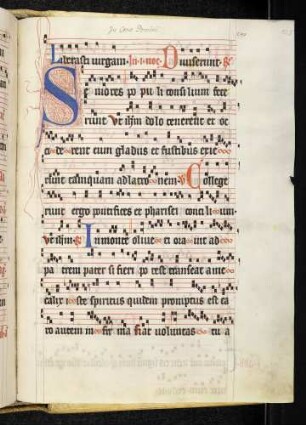 In Cena Domini
Laterasti virgam In i noc Diviserunt
Seniores populi consilium fece
runt Ut ihm dolo tenerent et oc
ciderent cum gladiis et fustibus exie
runt tanquam ad latronem V College
runt ergo pontifices et pharisei concilium
Ut ihm In monte oliveti oravit ad
patrem pater si fieri potest transeat a me
calix iste spiritus quidem promptus est ca
ro autem infirma fiat voluntas tua